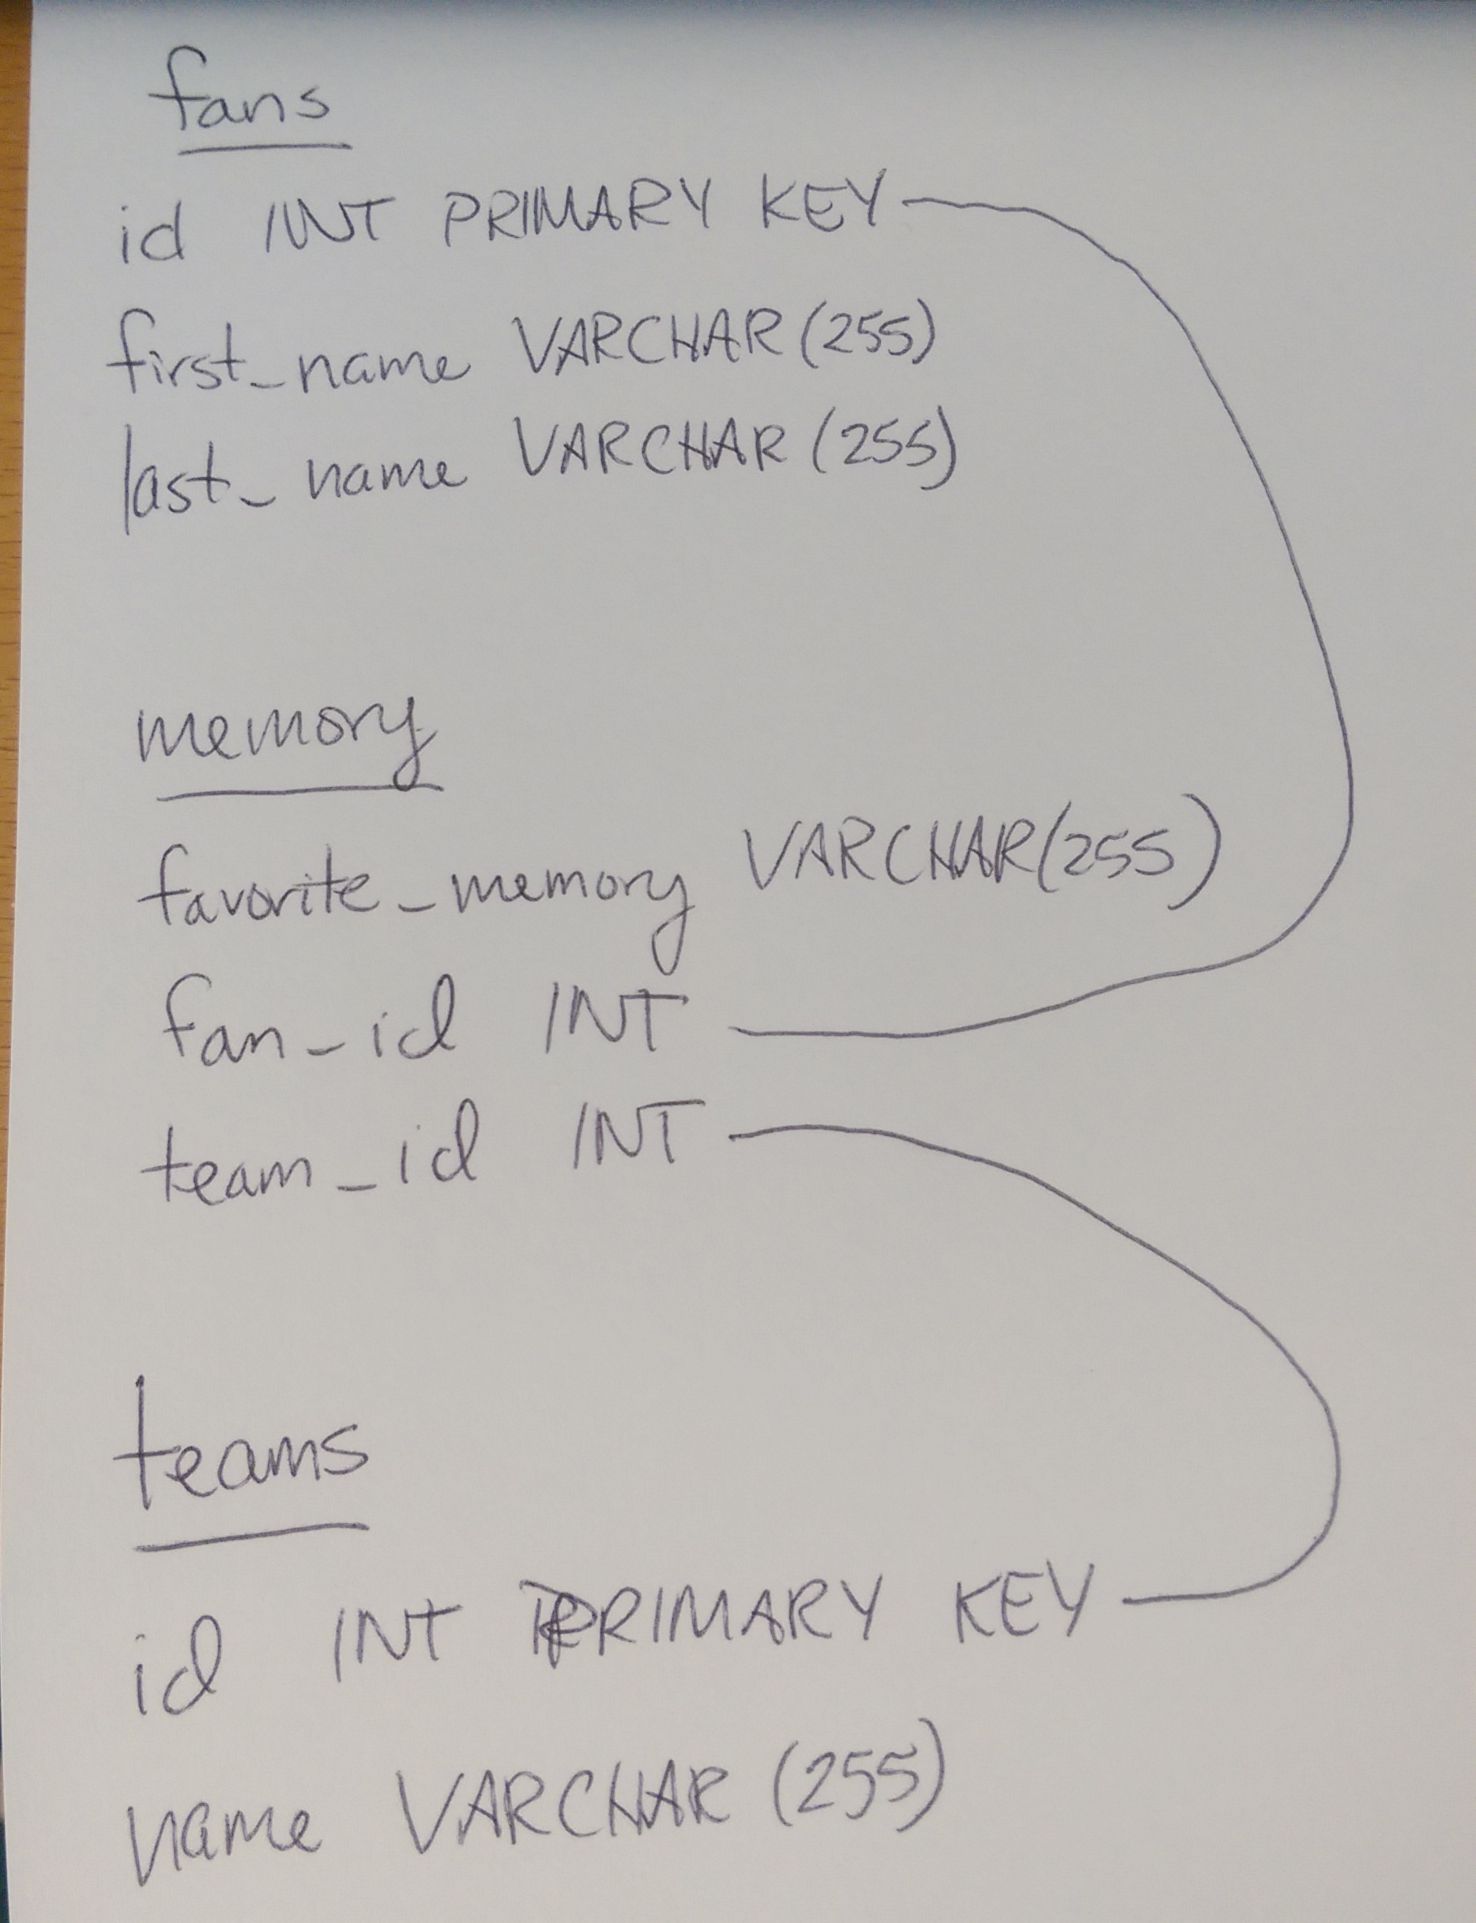 fans
id INT PRIMARY KEY
first_name VARCHAR(255)
last_name VARCHAR(255)
memory
favorite_memory VARCHAR(255)
fan_id INT
team_id INT
teams
id INT PRIMARY KEY
name VARCHAR(255)